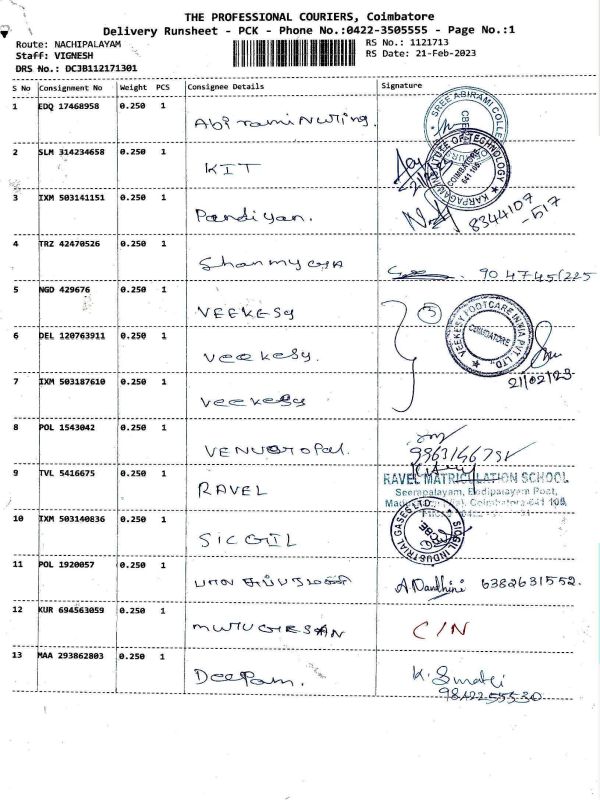 THE PROFESSIONAL COURIERS, Coimbatore
Delivery Runsheet - PCK - Phone No.:0422-3505555 - Page No.:1
Route: NACHIPALAYAM RS No.: 1121713
Staff: VIGNESH RS Date: 21-Feb-2023
DRS No.: DCJB112171301
S No Consignment No Weight PCS Consignee Details Signature
1 EDQ 17468958 0.250 1 Abirami Nursing. SREE ABIRAMI
2 SLM 314234658 0.250 1 KIT KARPAGAM INSTITUTE OF TECHNOLOGY COIMBATORE 641 105
3 IXM 503141151 0.250 1 Pandiyan. 8344107
-517
4 TRZ 42470526 0.250 1 Shanmuga 904745
5 NGD 429676 0.250 1 VEEKESY 3
6 DEL 120763911 0.250 1 Veekesy. VEEKESY FOOTCARE INDIA PVT. LTD., COIMBATORE
7 IXM 503187610 0.250 1 Veekesy 21/02/23
8 POL 1543042 0.250 1 VENUGOPAL.
9 TVL 5416675 0.250 1 RAVEL RAVEL MATRICULATION SCHOOL
Seerapalayam, Post,
Coimbatore-641 105.
10 IXM 503140836 0.250 1 SICGIL SICGIL INDUSTRIAL GASES LTD. CBE
11 POL 1920057 0.250 1 பால சுப்பிரமணி A Nandhini 6382631552.
12 KUR 694563059 0.250 1 MURUGESAN C/N
13 MAA 293862803 0.250 1 Deepam. K. Sumathi
9842255530